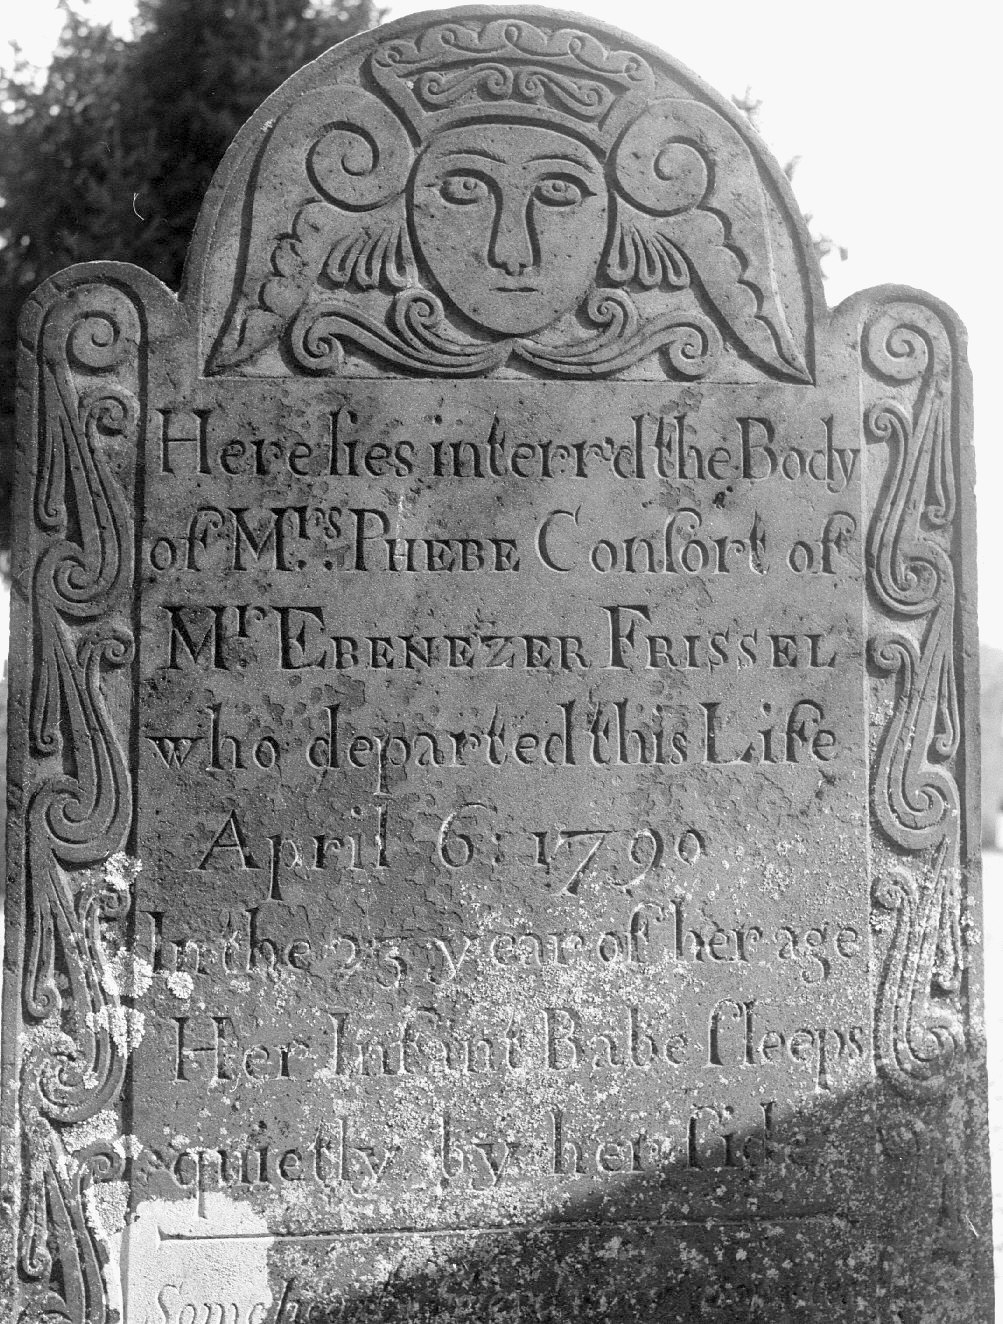 Here lies interr'd the Body
of Mrs. PHEBE Conſort of
Mr. EBENEZER FRISSEL
who departed this Life
April 6: 1790
in the 25 year of her age
Her Infant Babe ſleeps
quietly by her ſide
Some hearty